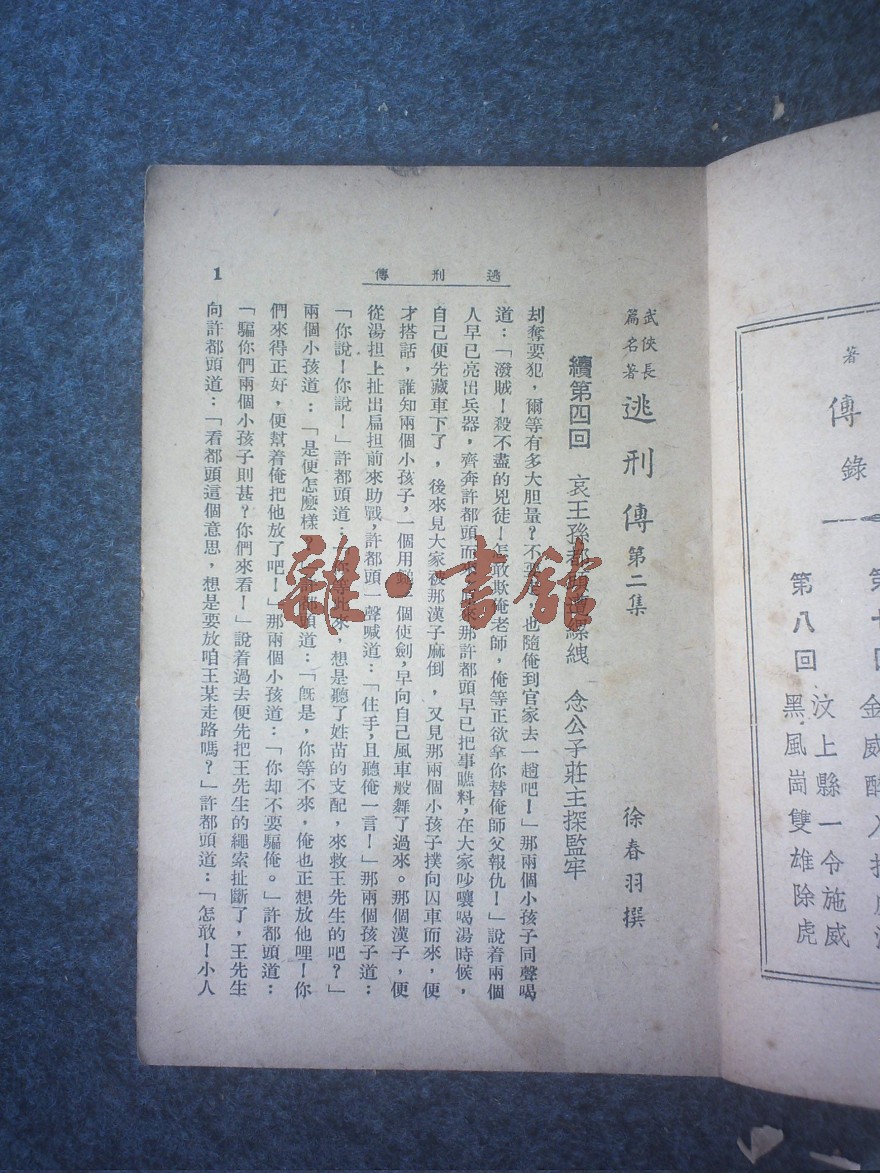 著
傳
錄
金威醉入
第八回
汶上縣一令施威
黑風崗雙雄除虎
武俠長
篇名著
逃刑傳第二集
徐春羽撰
續第四回 哀王孫 縲絏 念公子莊主探監牢
刦奪要犯，爾等有多大胆量？不 也隨俺到官家去一趟吧！」那兩個小孩子同聲喝
道：「潑賊！殺不盡的兇徒！怎敢欺俺老師，俺等正欲拿你替俺師父報仇！」說着兩個
人早已亮出兵器，齊奔許都頭而來 來那許都頭早已把事瞧料，在大家吵嚷喝湯時候，
自己便先藏車下了，後來見大家被那漢子麻倒，又見那兩個小孩子撲向囚車而來，便
才搭話，誰知兩個小孩子，一個用 個使劍，早向自己風車般舞了過來。那個漢子，便
從湯担上扯出扁担前來助戰，許都頭一聲喊道：「住手，且聽俺一言！」那兩個孩子道：
「你說！你說！」許都頭道： 你等此來，想是聽了姓苗的支配，來救王先生的吧？」
兩個小孩道：「是便怎麽樣？」許都頭道：「旣是，你等不來，俺也正想放他哩！你
們來得正好，便幫着俺把他放了吧！」那兩個小孩道：「你却不要騙俺。」許都頭道：
「騙你們兩個小孩子則甚？你們來看！」說着過去便先把王先生的繩索扯斷了，王先生
向許都頭道：「看都頭這個意思，想是要放咱王某走路嗎？」許都頭道：「怎敢！小人
逃刑傳
1
雜·書館